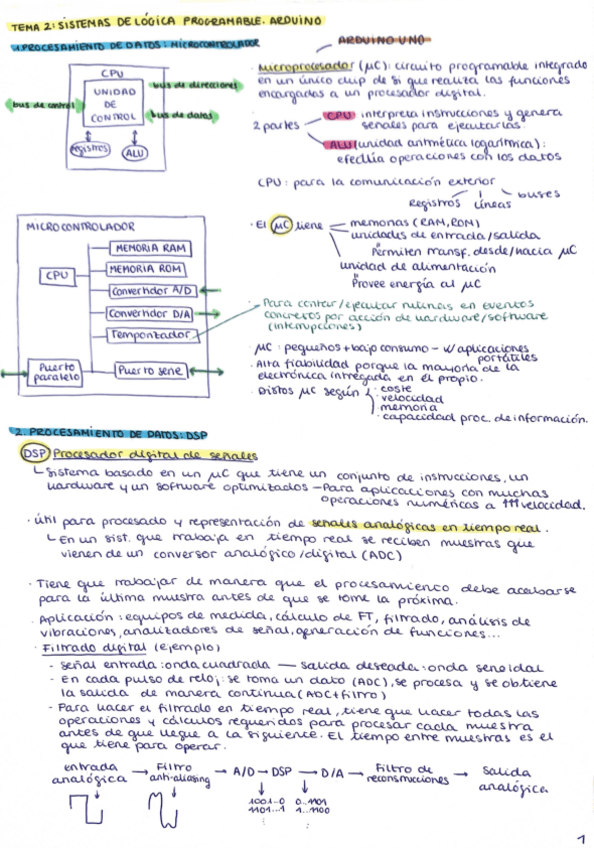 TEMA 2: SISTEMAS DE LÓGICA PROGRAMABLE. ARDUINO
1. PROCESAMIENTO DE DATOS: MICROCONTROLADOR
ARDUINO UNO
CPU
UNIDAD
DE
CONTROL
bus de direcciones
bus de control
bus de datos
registros
ALU
· Microprocesador (μC): circuito programable integrado
en un único chip de Si que realiza las funciones
encargadas a un procesador digital.
2 partes
CPU interpreta instrucciones y genera
señales para ejecutarlas.
ALU (unidad aritmética logarítmica):
efectúa operaciones con los datos
CPU: para la comunicación exterior
registros líneas buses
MICROCONTROLADOR
CPU
MEMORIA RAM
MEMORIA ROM
Convertidor A/D
Convertidor D/A
Temporizador
Puerto
paralelo
Puerto serie
· El μC tiene
memorias (RAM, ROM)
unidades de entrada/salida
Permiten transf. desde/hacia μC
unidad de alimentación
Provee energía al μC
· Para contar/ejecutar rutinas en eventos
concretos por acción de hardware/software
(interrupciones)
· μC: pequeños + bajo consumo – w/ aplicaciones
portátiles
· Alta fiabilidad porque la mayoría de la
electrónica integrada en el propio.
· Distos μC según
· coste
· velocidad
· memoria
· capacidad proc. de información.
2. PROCESAMIENTO DE DATOS: DSP
DSP Procesador digital de señales
Sistema basado en un μC que tiene un conjunto de instrucciones, un
hardware y un software optimizados – Para aplicaciones con muchas
operaciones numéricas a ↑↑↑ velocidad.
· útil para procesado y representación de señales analógicas en tiempo real.
En un sist. que trabaja en tiempo real se reciben muestras que
vienen de un conversor analógico/digital (ADC)
· Tiene que trabajar de manera que el procesamiento debe acabarse
para la última muestra antes de que se tome la próxima.
· Aplicación: equipos de medida, cálculo de FT, filtrado, análisis de
vibraciones, analizadores de señal, generación de funciones...
· Filtrado digital (ejemplo)
- Señal entrada: onda cuadrada — Salida deseada: onda senoidal
- En cada pulso de reloj: se toma un dato (ADC), se procesa y se obtiene
la salida de manera continua (ADC + filtro)
- Para hacer el filtrado en tiempo real, tiene que hacer todas las
operaciones y cálculos requeridos para procesar cada muestra
antes de que llegue a la siguiente. El tiempo entre muestras es el
que tiene para operar.
entrada analógica → Filtro anti-aliasing → A/D → DSP → D/A → Filtro de reconstrucciones → Salida analógica
1001..0 0..1101
1101...1 1..1100
1